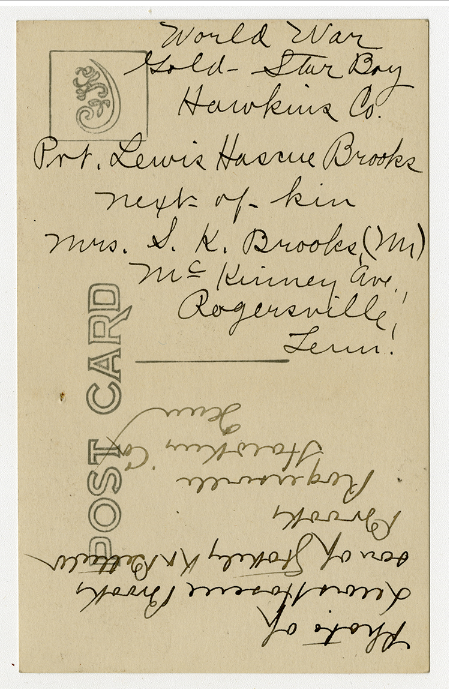 World War
Gold-Star Boy
Hawkins Co.
Pvt. Lewis Hascue Brooks
next-of-kin
Mrs. S. K. Brooks, (M)
Mc Kinney Ave.,
Rogersville,
Tenn.
POST CARD
Photo of
Lewis Hascue Brooks
son of Stokely K & Bettie
Brooks
Rogersville
Hawkins Co
Tenn